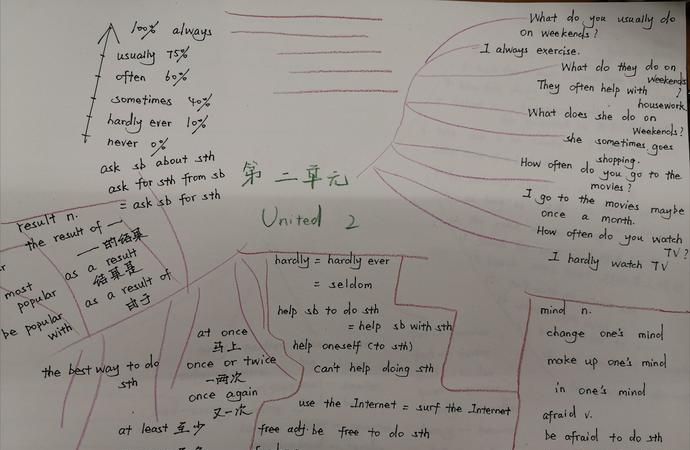 100% always
usually 75%
often 60%
sometimes 40%
hardly ever 10%
never 0%
ask sb about sth
ask for sth from sb
= ask sb for sth
第二单元
United 2
What do you usually do
on weekends?
I always exercise.
What do they do on
weekends?
They often help with
housework
What does she do on
weekends?
she sometimes goes
shopping.
How often do you go to the
movies?
I go to the movies maybe
once a month.
How often do you watch
TV?
I hardly watch TV
result n.
the result of 一
一的结果
as a result
结果是
as a result of
由于
most
popular
be popular
with
the best way to do
sth
at once
马上
once or twice
一两次
once again
又一次
at least 至少
hardly = hardly ever
= seldom
help sb to do sth
= help sb with sth
help oneself (to sth)
can't help doing sth
use the Internet = surf the Internet
free adj. be free to do sth
mind n.
change one's mind
make up one's mind
in one's mind
afraid v.
be afraid to do sth